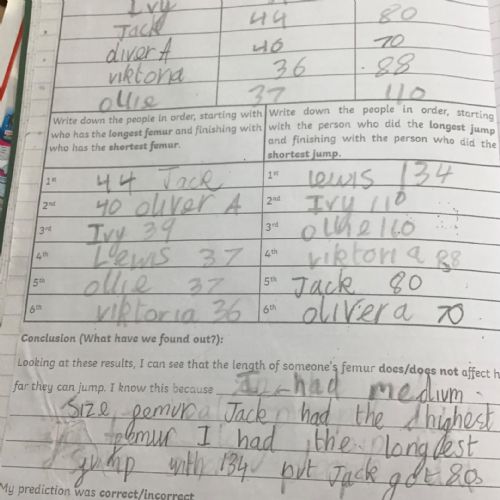 Ivy
Jack 44 80
oliver A 40 70
viktoria 36 88
ollie 37 110
Write down the people in order, starting with who has the longest femur and finishing with who has the shortest femur.
Write down the people in order, starting with the person who did the longest jump and finishing with the person who did the shortest jump.
1st 44 Jack 1st Lewis 134
2nd 40 oliver A 2nd Ivy 110
3rd Ivy 39 3rd ollie 110
4th Lewis 37 4th viktoria 88
5th ollie 37 5th Jack 80
6th viktoria 36 6th oliver a 70
Conclusion (What have we found out?):
Looking at these results, I can see that the length of someone's femur does/does not affect h
far they can jump. I know this because I had medium
size pemur Jack had the highest
femur I had the longest
gump with 134 but Jack got 80
My prediction was correct/incorrect